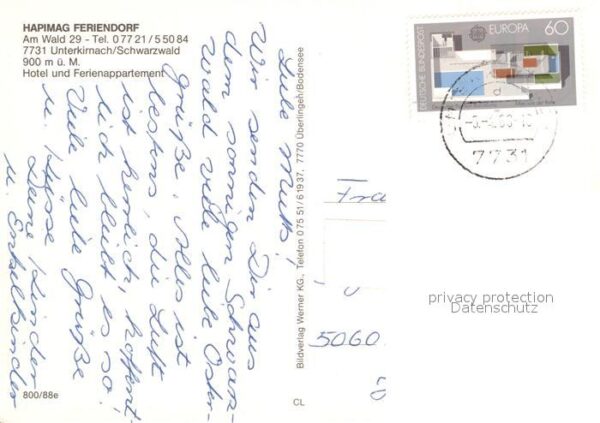 HAPIMAG FERIENDORF
Am Wald 29 - Tel. 0 77 21 / 5 50 84
7731 Unterkirnach/Schwarzwald
900 m ü. M.
Hotel und Ferienappartement
Liebe Mutti!
Wir senden Dir aus
dem sonnigen Schwarz-
wald viele liebe Oster-
grüße. Alles ist
bestens, die Luft
ist herrlich, hoffent-
lich bleibt es so.
Viele liebe Grüße
u. Küsse
Deine Kinder
u. Enkelkinder
800/88e
CL
Bildverlag Werner KG., Telefon 075 51/6 19 37, 7770 Überlingen/Bodensee
DEUTSCHE BUNDESPOST
EUROPA 60
7731
Fra
5060
privacy protection
Datenschutz